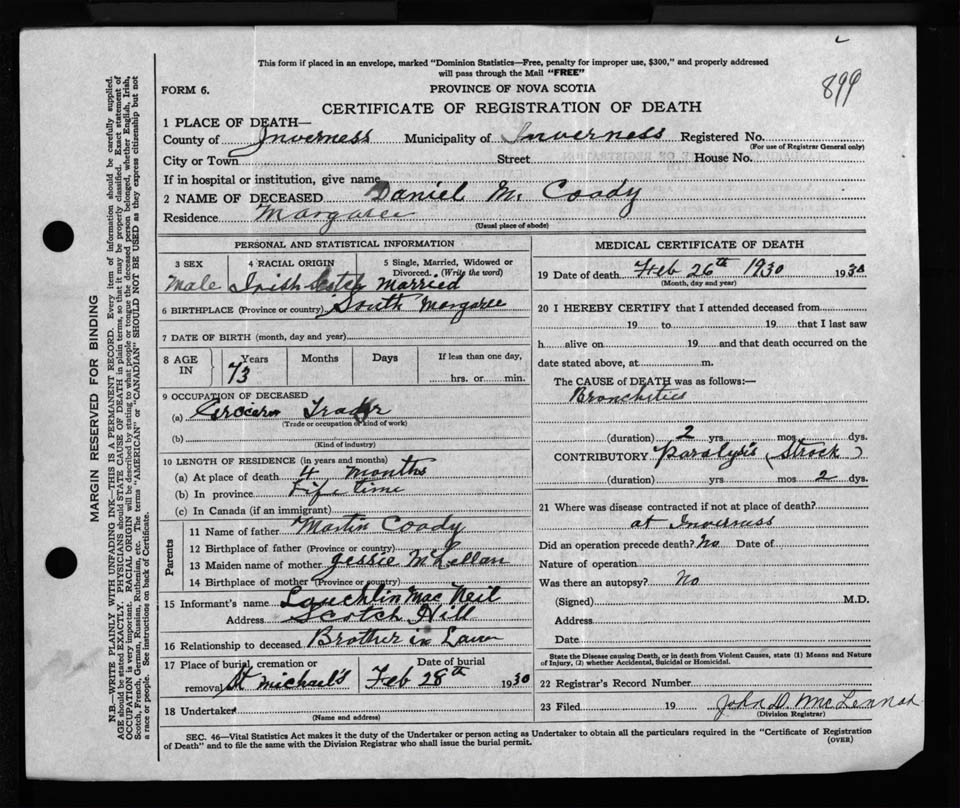 This form if placed in an envelope, marked "Dominion Statistics—Free, penalty for improper use, $300," and properly addressed
will pass through the Mail "FREE"
899
FORM 6.
PROVINCE OF NOVA SCOTIA
CERTIFICATE OF REGISTRATION OF DEATH
1 PLACE OF DEATH—
County of Inverness Municipality of Inverness Registered No.
(For use of Registrar General only)
City or Town Street House No.
If in hospital or institution, give name
2 NAME OF DECEASED Daniel M. Coady
Residence Margaree
(Usual place of abode)
PERSONAL AND STATISTICAL INFORMATION
3 SEX 4 RACIAL ORIGIN 5 Single, Married, Widowed or
Divorced. (Write the word)
Male Irish Scotch Married
6 BIRTHPLACE (Province or country) South Margaree
7 DATE OF BIRTH (month, day and year)
8 AGE IN Years Months Days If less than one day,
73 hrs. or min.
9 OCCUPATION OF DECEASED
(a) Trader
(Trade or occupation or kind of work)
(b)
(Kind of industry)
10 LENGTH OF RESIDENCE (in years and months)
(a) At place of death 4 months
(b) In province Life time
(c) In Canada (if an immigrant)
Parents
11 Name of father Martin Coady
12 Birthplace of father (Province or country)
13 Maiden name of mother Jessie McLellan
14 Birthplace of mother (Province or country)
15 Informant's name Lauchlin Mac Neil
Address Scotch Hill
16 Relationship to deceased Brother in Law
17 Place of burial, cremation or Date of burial
removal St Michael's Feb 28th 1930
18 Undertaker
(Name and address)
MEDICAL CERTIFICATE OF DEATH
19 Date of death Feb 26th 1930 1930
(Month, day and year)
20 I HEREBY CERTIFY that I attended deceased from
19 to 19 that I last saw
h alive on 19 and that death occurred on the
date stated above, at m.
The CAUSE of DEATH was as follows:—
Bronchities
(duration) 2 yrs. mos. dys.
CONTRIBUTORY Paralysis (Strock)
(duration) yrs. mos. 2 dys.
21 Where was disease contracted if not at place of death?
at Inverness
Did an operation precede death? No Date of
Nature of operation
Was there an autopsy? No
(Signed) M.D.
Address
Date
State the Disease causing Death, or in death from Violent Causes, state (1) Means and Nature
of Injury, (2) whether Accidental, Suicidal or Homicidal.
22 Registrar's Record Number
23 Filed 19 John D. McLennan
(Division Registrar)
SEC. 46—Vital Statistics Act makes it the duty of the Undertaker or person acting as Undertaker to obtain all the particulars required in the "Certificate of Registration
of Death" and to file the same with the Division Registrar who shall issue the burial permit. (OVER)
MARGIN RESERVED FOR BINDING
N.B.—WRITE PLAINLY WITH UNFADING INK—THIS IS A PERMANENT RECORD. Every item of information should be carefully supplied.
AGE should be stated EXACTLY. PHYSICIANS should STATE CAUSE OF DEATH in plain terms, so that it may be properly classified. Exact statement of
OCCUPATION is very important. RACIAL ORIGIN will be described by stating to what people or tongue the deceased person belonged, whether English, Irish,
Scotch, French, German, Russian, Ruthenian, etc. The terms "AMERICAN" or "CANADIAN" SHOULD NOT BE USED as they express citizenship but not
a race or people. See instructions on back of Certificate.